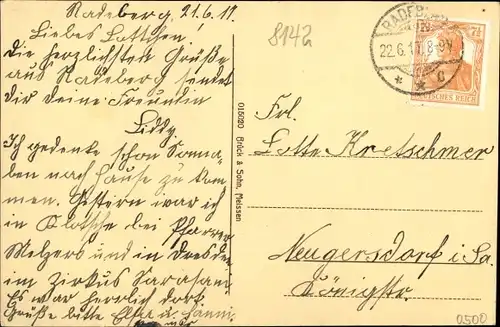 Radeberg, 21.6.17.
Liebes Lottchen!
Die herzlichsten Grüße
aus Radeberg sendet
dir deine Freundin
Liddy
Ich gedenke schon Sonna,
ben nach Hause zu kom
men. Gestern war ich
in Klotsche bei Pfarrer
Melzers und in Dresden
im Zirkus Sarasani
Es war herrlich dort.
Grüße bitte Elsa u. Hanni
8142
RADEBERG
22.6.17. 8-9V.
* * c
7½
DEUTSCHES REICH
015020 Brück & Sohn, Meissen
Frl.
Lotte Kretschmer
Neugersdorf i. Sa.
Königstr.